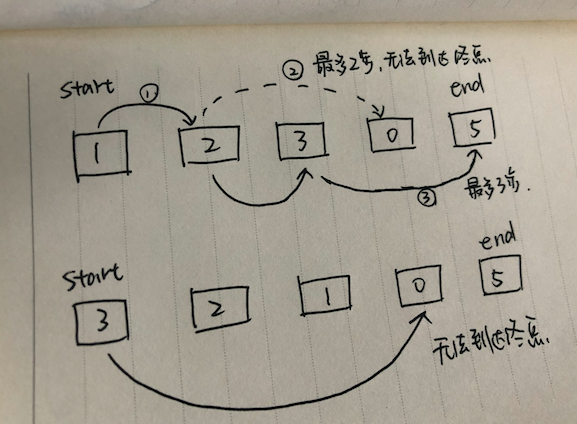 ② 最多2步,无法到达终点.
start ① end
1 2 3 0 5
③ 最多3步.
start end
3 2 1 0 5
无法到达终点.